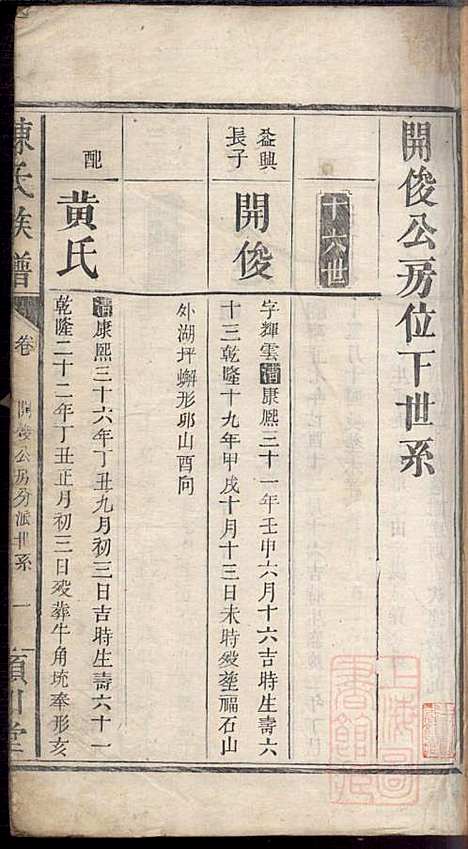 開俊公房位下世系
十六世
益興
長子
開俊
字輝雲清康熙三十一年壬申六月十六吉時生壽六
十三乾隆十九年甲戌十月十三日未時歿塟福石山
外湖坪蠏形邜山酉向
配
黄氏
清康熙三十六年丁丑九月初三日吉時生壽六十一
乾隆二十二年丁丑正月初三日歿葬牛角坑奉形亥
陳氏族譜
卷
開俊公房分派世系
一
潁川堂
上海圖
書館藏